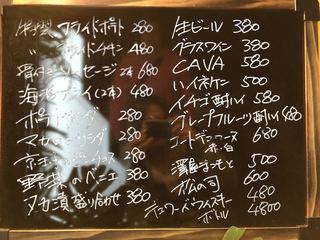 フライドポテト 280
〃 フライドチキン 480
骨付ソーセージ 2本 680
海老フライ(2本) 480
ポテトサラダ 280
マカロニサラダ 280
380
野菜のベニエ 380
ヌカ漬盛り合わせ 380
生ビール 380
グラスワイン 380
CAVA 580
ハイネケン 500
イチゴ酎ハイ 580
グレープフルーツ酎ハイ 480
コートデュローヌ 赤・白 680
まつもと 500
の司 600
デュワーズウイスキー 480
ボトル 4800